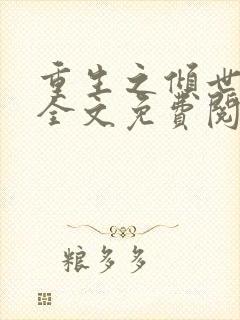 重生之傾世
全文免費閱
粮多多